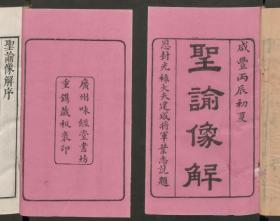 咸豐丙辰初夏
聖諭像解
恩封光祿大夫建威將軍葉志詵題
廣州味經堂書坊
重鐫藏板裝印
聖諭像解序